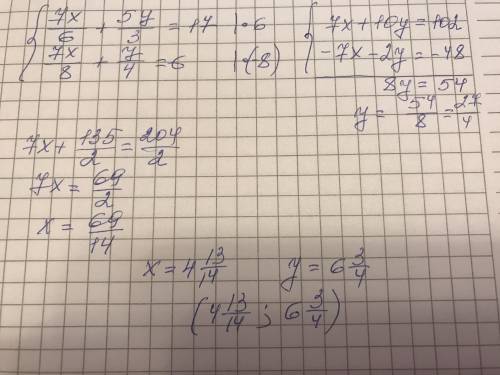 { 7x/6 + 5y/3 = 17 |·6
7x/8 + y/4 = 6 |·(-8)
{ 7x + 10y = 102
-7x - 2y = -48
8y = 54
y = 54/8 = 27/4
7x + 135/2 = 204/2
7x = 69/2
x = 69/14
x = 4 13/14 y = 6 3/4
(4 13/14 ; 6 3/4)